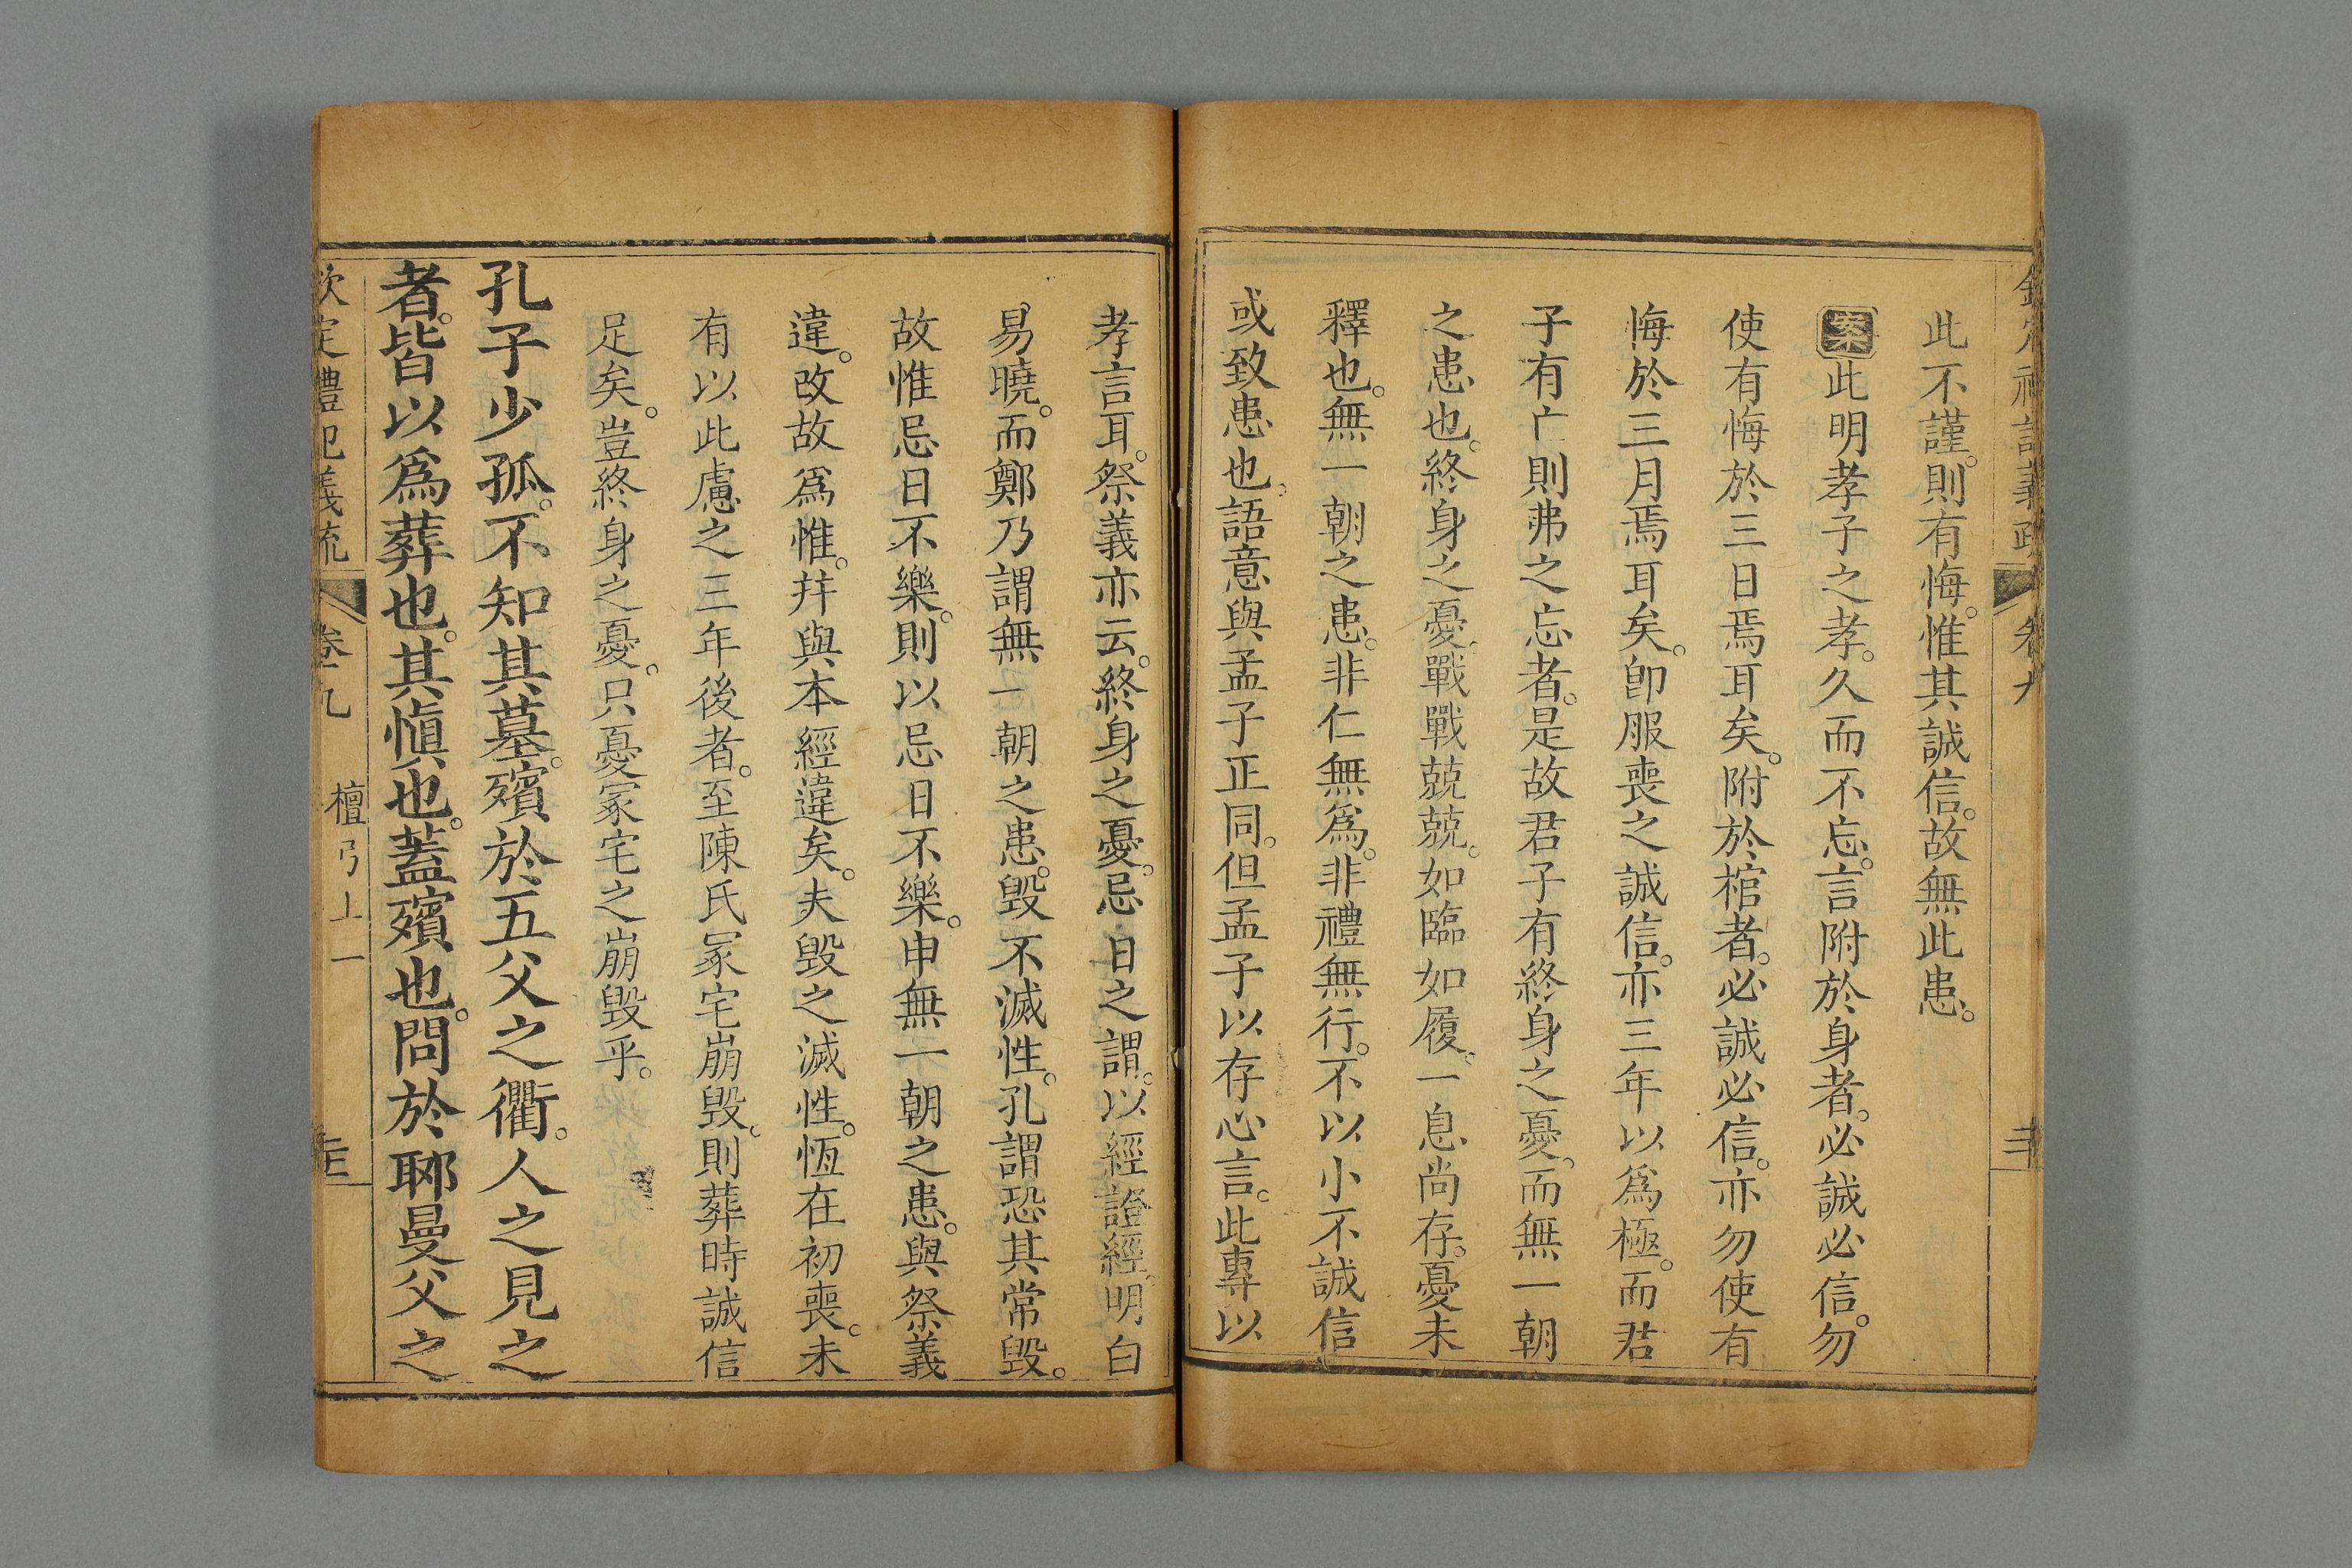 欽定禮記義疏 卷九
此不謹。則有悔。惟其誠信。故無此患。
案此明孝子之孝。久而不忘。言附於身者。必誠必信。勿
使有悔於三日焉耳矣。附於棺者。必誠必信。亦勿使有
悔於三月焉耳矣。卽服喪之誠信。亦三年以爲極。而君
子有亡則弗之忘者。是故君子有終身之憂。而無一朝
之患也。終身之憂。戰戰兢兢。如臨如履。一息尚存。憂未
釋也。無一朝之患。非仁無爲。非禮無行。不以小不誠信
或致患也。語意與孟子正同。但孟子以存心言。此專以
孝言耳。祭義亦云。終身之憂。忌日之謂。以經證經。明白
易曉。而鄭乃謂無一朝之患。毀不滅性。孔謂恐其常毀。
故惟忌日不樂。則以忌日不樂。申無一朝之患。與祭義
違。改故爲惟。幷與本經違矣。夫毀之滅性。恆在初喪。未
有以此慮之三年後者。至陳氏冢宅崩毀。則葬時誠信
足矣。豈終身之憂。只憂冢宅之崩毀乎。
孔子少孤。不知其墓。殯於五父之衢。人之見之
者。皆以爲葬也。其愼也。蓋殯也。問於郰曼父之
欽定禮記義疏 卷九 檀弓上一